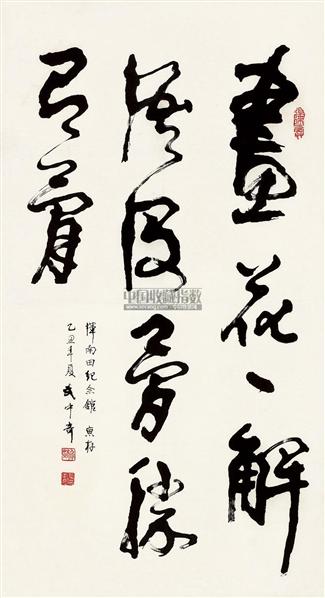 畫花々解
語没骨勝
有骨
惲南田紀念館 惠存
乙丑年夏 武中奇
中国收藏指数